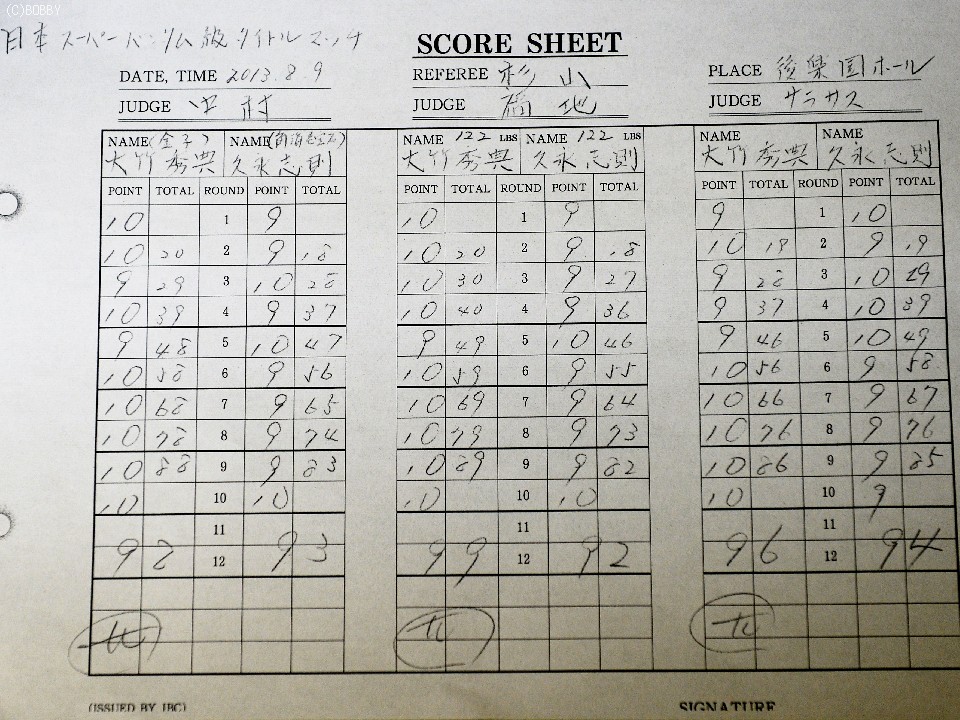 (C)BOBBY
日本スーパーバンタム級タイトルマッチ
SCORE SHEET
DATE, TIME 2013.8.9 REFEREE 杉山 PLACE 後楽園ホール
JUDGE 中村 JUDGE 福地 JUDGE サラサス
NAME (金子) NAME (角海老宝石) NAME 122 LBS NAME 122 LBS NAME NAME
大竹秀典 久永志則 大竹秀典 久永志則 大竹秀典 久永志則
POINT TOTAL ROUND POINT TOTAL POINT TOTAL ROUND POINT TOTAL POINT TOTAL ROUND POINT TOTAL
10 1 9 10 1 9 9 1 10
10 20 2 9 18 10 20 2 9 18 10 19 2 9 19
9 29 3 10 28 10 30 3 9 27 9 28 3 10 29
10 39 4 9 37 10 40 4 9 36 9 37 4 10 39
9 48 5 10 47 9 49 5 10 46 9 46 5 10 49
10 58 6 9 56 10 59 6 9 55 10 56 6 9 58
10 68 7 9 65 10 69 7 9 64 10 66 7 9 67
10 78 8 9 74 10 79 8 9 73 10 76 8 9 76
10 88 9 9 83 10 89 9 9 82 10 86 9 9 85
10 10 10 10 10 10 10 10 9
11 11 11
98 12 93 99 12 92 96 12 94
(ISSUED BY JBC) SIGNATURE